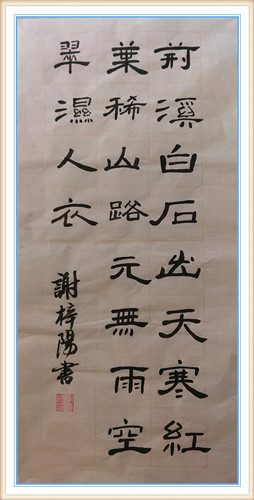 荊溪白石出天寒紅
葉稀山路元無雨空
翠濕人衣
謝梓陽書